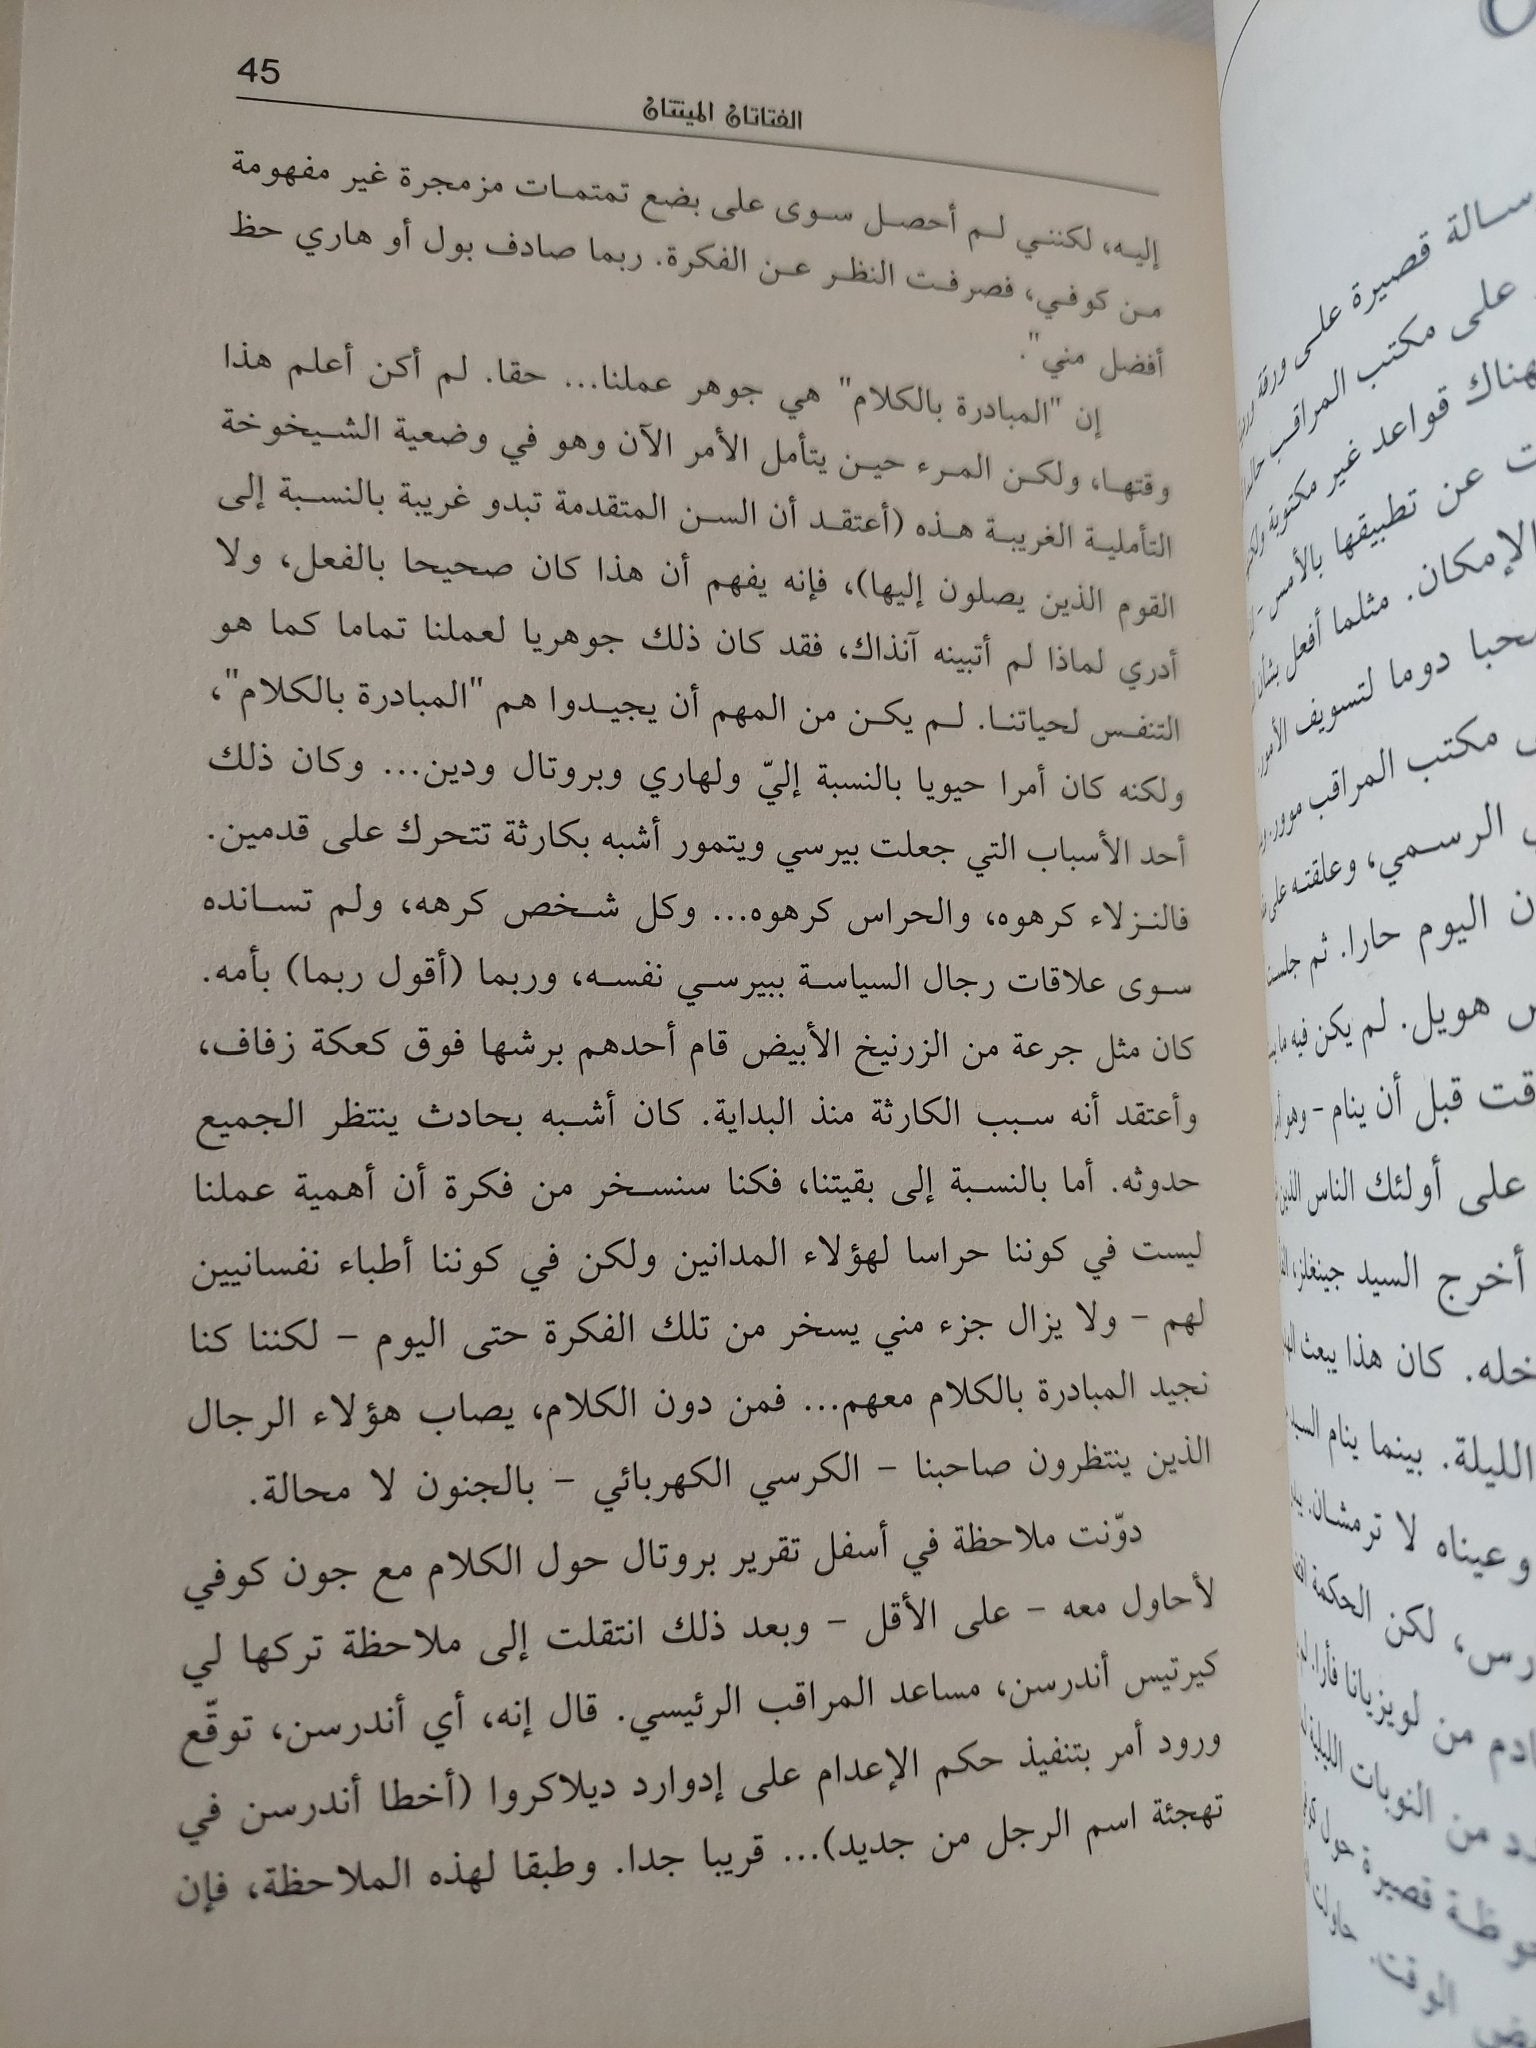 45
الفتاتان الميتتان
إليه، لكنني لم أحصل سوى على بضع تمتمات مزمجرة غير مفهومة
من كوفي، فصرفت النظر عن الفكرة. ربما صادف بول أو هاري حظ
أفضل مني".
إن "المبادرة بالكلام" هي جوهر عملنا... حقا. لم أكن أعلم هذا
وقتها، ولكن المرء حين يتأمل الأمر الآن وهو في وضعية الشيخوخة
التأملية الغريبة هذه (أعتقد أن السن المتقدمة تبدو غريبة بالنسبة إلى
القوم الذين يصلون إليها)، فإنه يفهم أن هذا كان صحيحا بالفعل، ولا
أدري لماذا لم أتبينه آنذاك، فقد كان ذلك جوهريا لعملنا تماما كما هو
التنفس لحياتنا. لم يكن من المهم أن يجيدوا هم "المبادرة بالكلام"،
ولكنه كان أمرا حيويا بالنسبة إليّ ولهاري وبروتال ودين... وكان ذلك
أحد الأسباب التي جعلت بيرسي ويتمور أشبه بكارثة تتحرك على قدمين.
فالنزلاء كرهوه، والحراس كرهوه... وكل شخص كرهه، ولم تسانده
سوى علاقات رجال السياسة ببيرسي نفسه، وربما (أقول ربما) بأمه.
كان مثل جرعة من الزرنيخ الأبيض قام أحدهم برشها فوق كعكة زفاف،
وأعتقد أنه سبب الكارثة منذ البداية. كان أشبه بحادث ينتظر الجميع
حدوثه. أما بالنسبة إلى بقيتنا، فكنا سنسخر من فكرة أن أهمية عملنا
ليست في كوننا حراسا لهؤلاء المدانين ولكن في كوننا أطباء نفسانيين
لهم - ولا يزال جزء مني يسخر من تلك الفكرة حتى اليوم - لكننا كنا
نجيد المبادرة بالكلام معهم... فمن دون الكلام، يصاب هؤلاء الرجال
الذين ينتظرون صاحبنا - الكرسي الكهربائي - بالجنون لا محالة.
دوّنت ملاحظة في أسفل تقرير بروتال حول الكلام مع جون كوفي
لأحاول معه - على الأقل - وبعد ذلك انتقلت إلى ملاحظة تركها لي
كيرتيس أندرسن، مساعد المراقب الرئيسي. قال إنه، أي أندرسن، توقّع
ورود أمر بتنفيذ حكم الإعدام على إدوارد ديلاكروا (أخطا أندرسن في
تهجئة اسم الرجل من جديد)... قريبا جدا. وطبقا لهذه الملاحظة، فإن
سالة قصيرة على ورقة
على مكتب المراقب
هناك قواعد غير مكتوبة
ت عن تطبيقها بالأمس
الإمكان. مثلما أفعل بشأن
حبا دوما لتسويف الأمور
مكتب المراقب مورز
الرسمي، وعلقته على
ن اليوم حارا. ثم جلست
س هويل. لم يكن فيه
قت قبل أن ينام - وهو
على أولئك الناس الذين
أخرج السيد جينغلز،
خله. كان هذا يبعث
الليلة. بينما ينام السيد
وعيناه لا ترمشان.
رس، لكن الحكمة
ادم من لويزيانا فأرا.
د من النوبات الليلية
وظة قصيرة حول
الوقت. حاولت